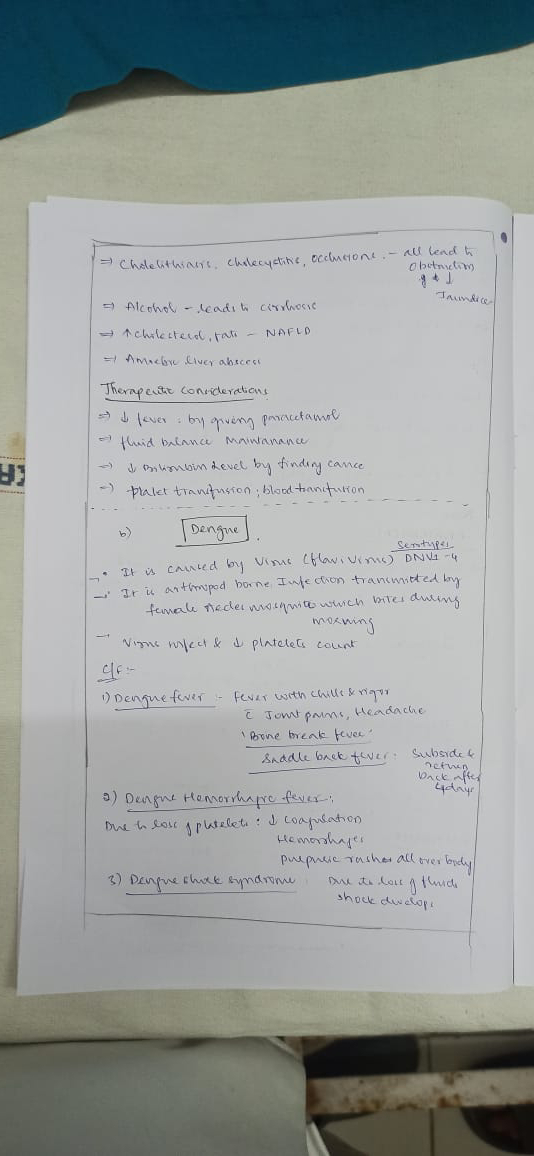 ⇒ Cholelithiasis, cholecystitis, occlusions. - all lead to
obstruction
↓
Jaundice
⇒ Alcohol - leads to cirrhosis
⇒ ↑ cholesterol, fats - NAFLD
⇒ Amoebic liver abscess
Therapeutic considerations
⇒ ↓ fever : by giving paracetamol
⇒ fluid balance maintanance
⇒ ↓ bilirubin level by finding cause
⇒ platelet transfusion ; blood transfusion
b) Dengue.
Serotypes
• It is caused by virus (flavi virus) DNV1-4
• It is arthropod borne Infection transmitted by
female Aedes mosquito which bites during
morning
- Virus infect & ↓ platelets count
C/F :-
1) Dengue fever :- fever with chills & rigor
c̄ Joint pains, Headache
'Bone break fever'
Saddle back fever : Subside &
return
back after
4 days
2) Dengue Hemorrhagic fever :
Due to loss of platelets : ↓ coagulation
Hemorrhages
purpuric rashes all over body
3) Dengue shock syndrome : Due to loss of fluids
shock develops